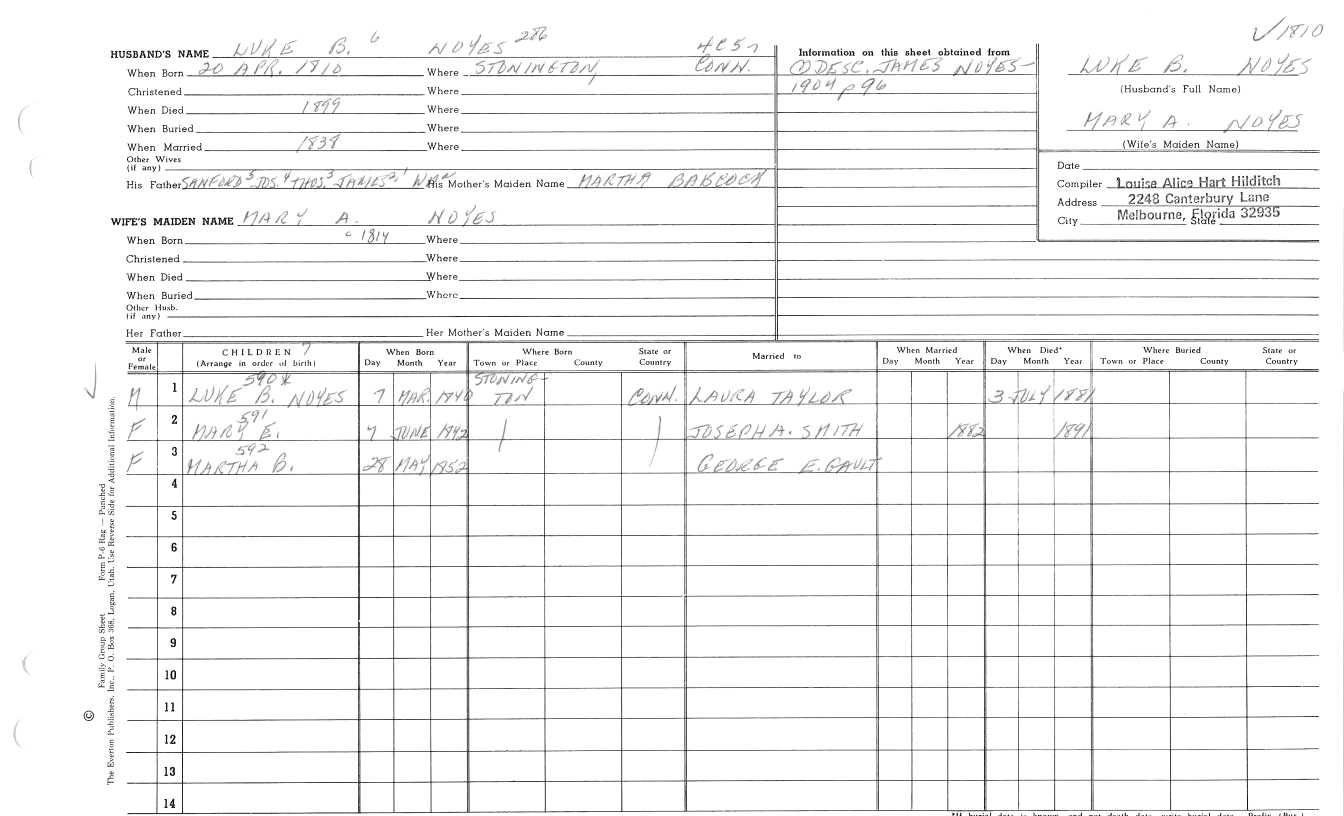 ✓1810
HUSBAND'S NAME LUKE B. 6 NOYES 286
When Born 20 APR. 1810 Where STONINGTON, CONN.
Christened Where
When Died 1899 Where
When Buried Where
When Married 1838 Where
Other Wives
(if any)
His Father SANFORD 5 JOS. 4 THOS. 3 JAMES 2, 1 His Mother's Maiden Name MARTHA BABCOCK
WIFE'S MAIDEN NAME MARY A. NOYES
When Born c 1814 Where
Christened Where
When Died Where
When Buried Where
Other Husb.
(if any)
Her Father Her Mother's Maiden Name
Information on this sheet obtained from
① DESC. JAMES NOYES-
1904 p 96
LUKE B. NOYES
(Husband's Full Name)
MARY A. NOYES
(Wife's Maiden Name)
Date
Compiler Louise Alice Hart Hilditch
Address 2248 Canterbury Lane
City Melbourne, Florida 32935 State
Male or Female CHILDREN 7 (Arrange in order of birth) When Born Day Month Year Where Born Town or Place County State or Country Married to When Married Day Month Year When Died* Day Month Year Where Buried Town or Place County State or Country
M 1 590* LUKE B. NOYES 7 MAR. 1840 STONING-TON CONN. LAURA TAYLOR 3 JULY 1881
F 2 591 MARY E. 7 JUNE 1842 JOSEPH A. SMITH 1882 1891
F 3 592 MARTHA B. 28 MAY 1852 GEORGE E. GAULT
4
5
6
7
8
9
10
11
12
13
14
© Family Group Sheet Form P-6 Hag — Punched
The Everton Publishers, Inc., P. O. Box 368, Logan, Utah. Use Reverse Side for Additional Information.